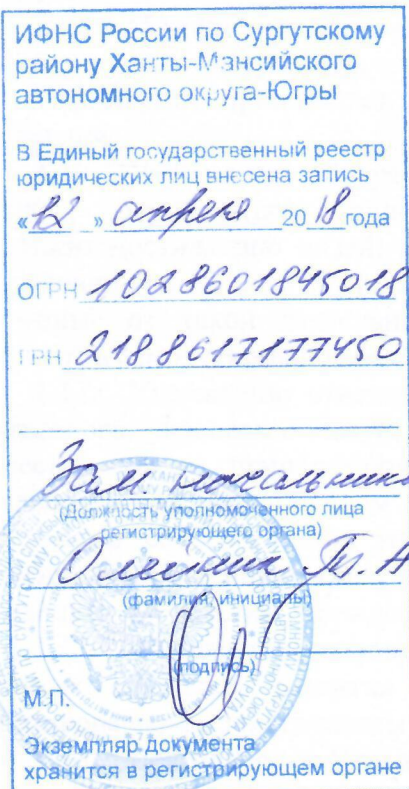 ИФНС России по Сургутскому
району Ханты-Мансийского
автономного округа-Югры
В Единый государственный реестр
юридических лиц внесена запись
«12» апреля 2018 года
ОГРН 1028601845018
ГРН 2188617177450
Зам. начальника
(Должность уполномоченного лица
регистрирующего органа)
Олейник Т. А
(фамилия, инициалы)
(подпись)
М.П.
Экземпляр документа
хранится в регистрирующем органе